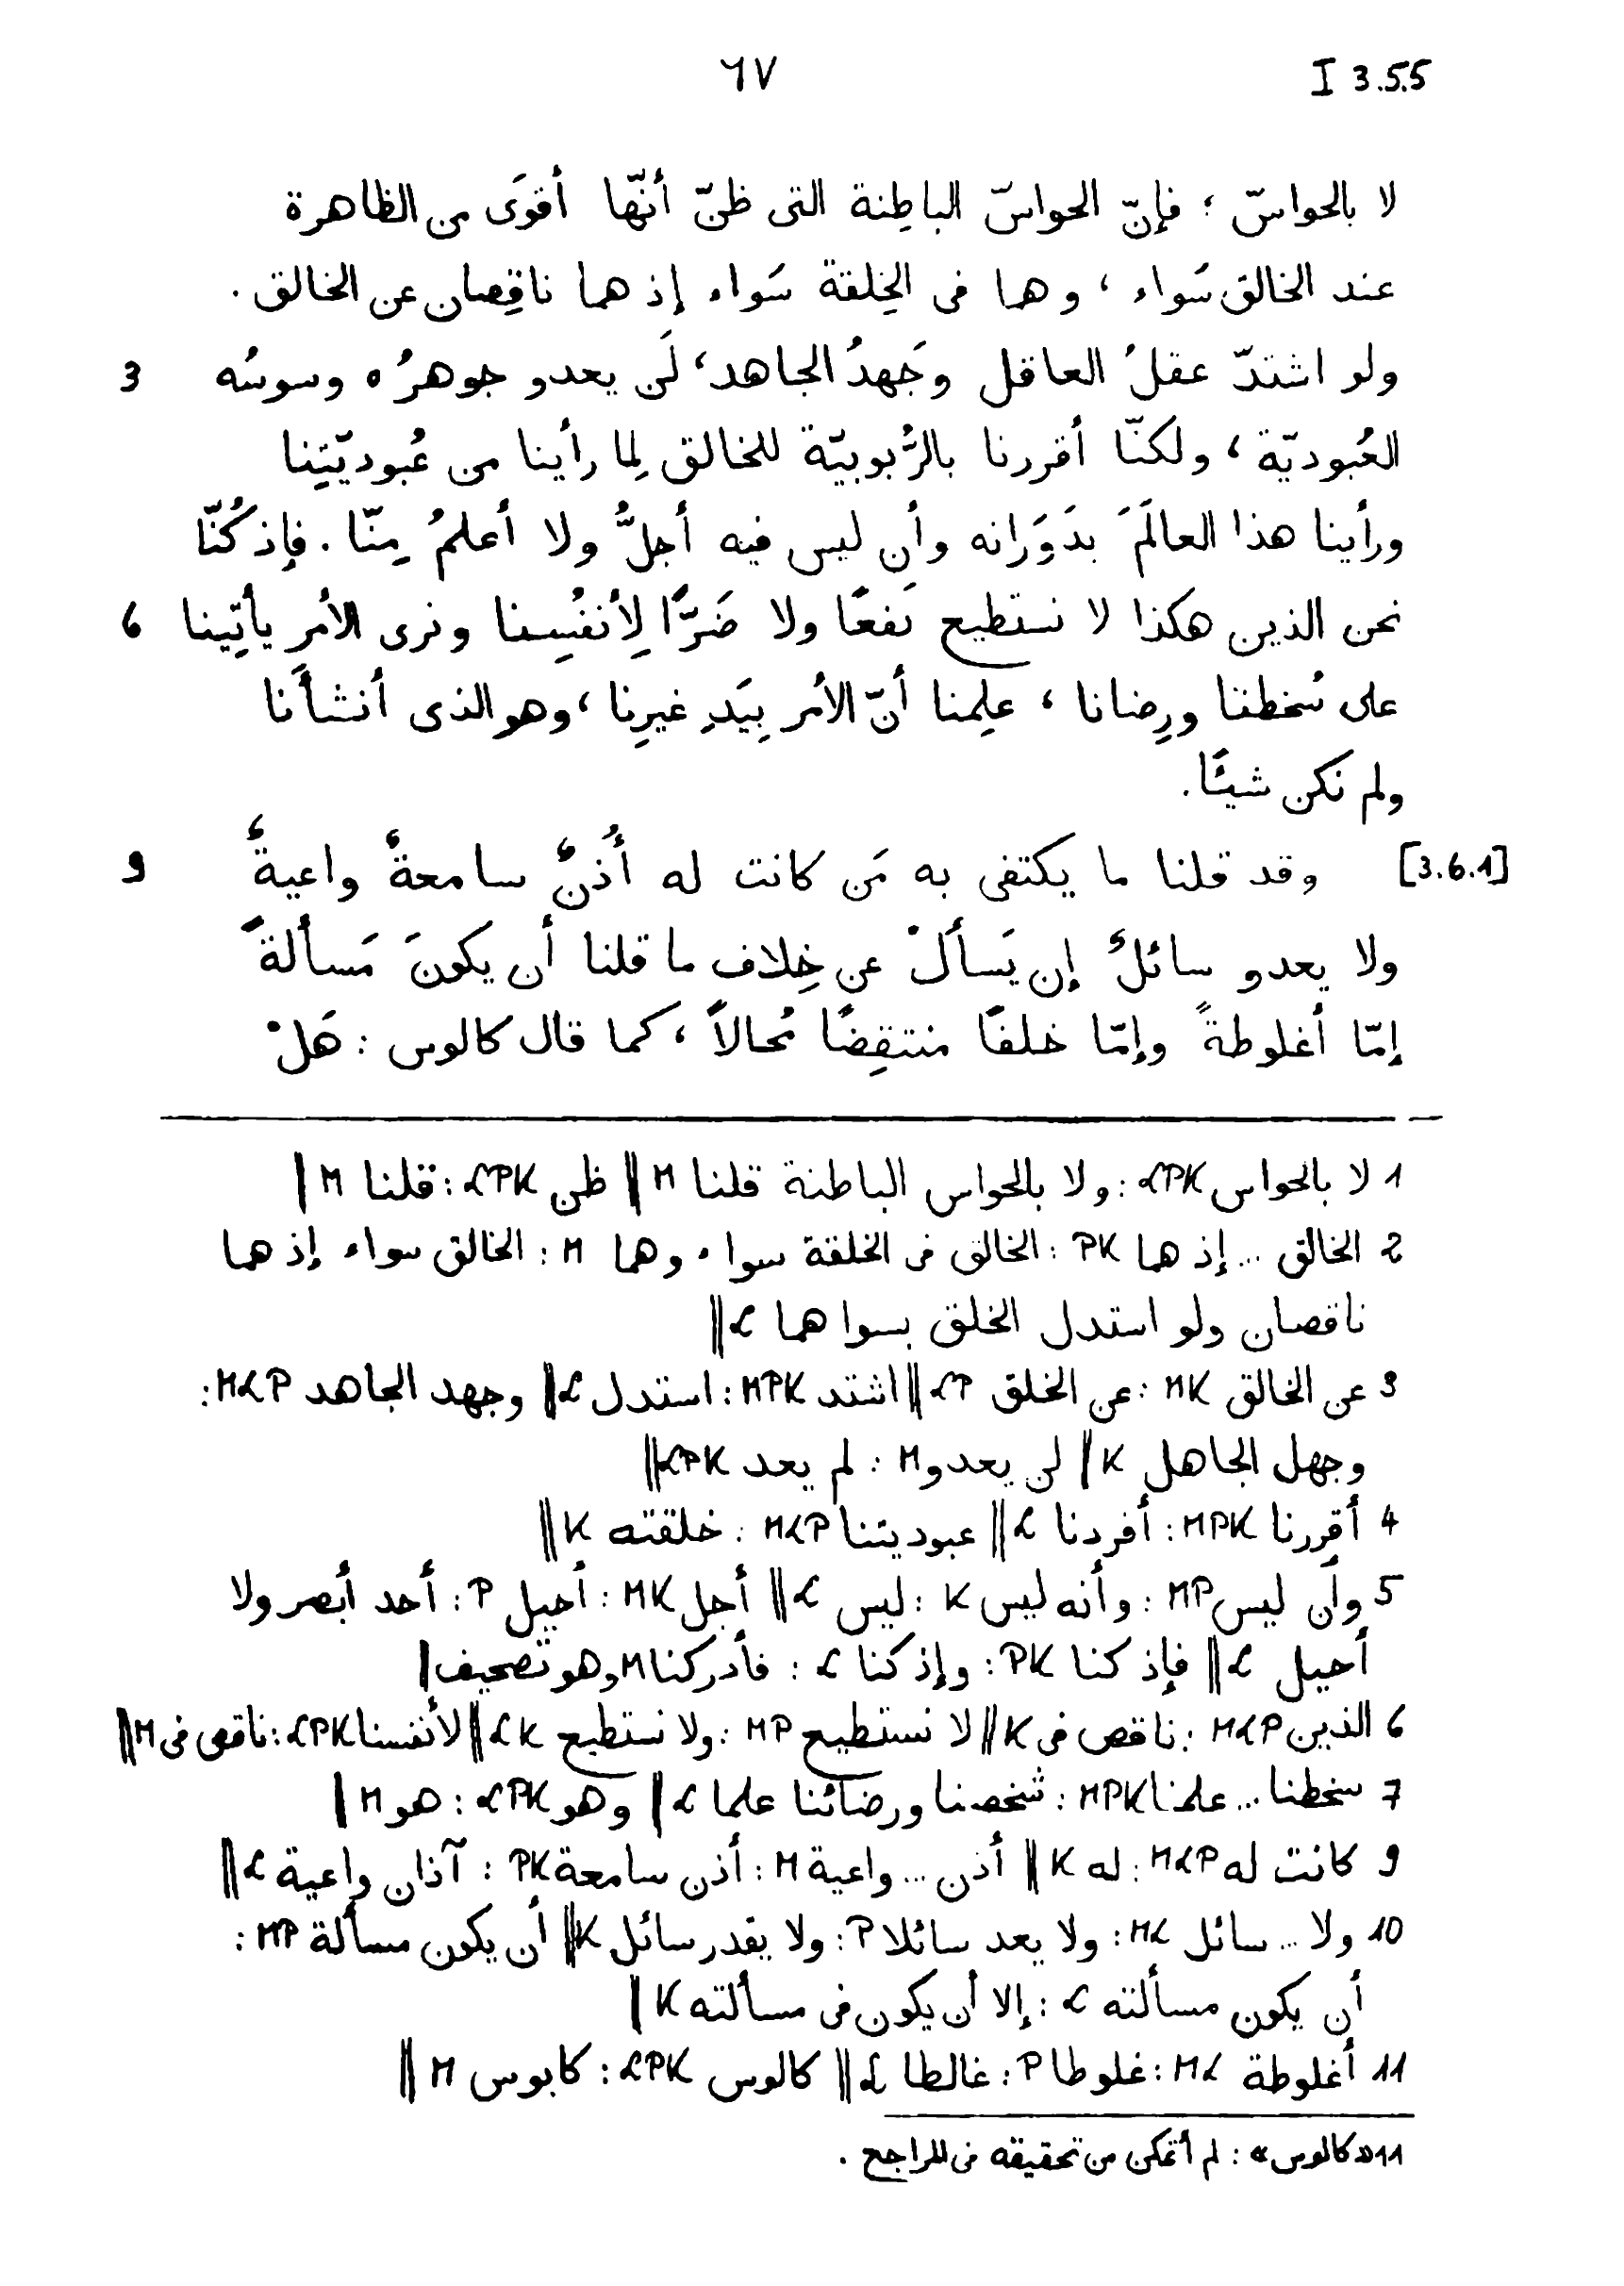 ٦٧ I 3.5.5
لا بالحواسّ ؛ فإنّ الحواسّ الباطِنة التى ظنّ أنّها أقوَى من الظاهرة
عند الخالق سَواء ، وهما فى الخِلقة سَواء إذ هما ناقِصان عن الخالق .
3 ولو اشتدّ عقلُ العاقل وجَهدُ الجاهد، لَن يعدو جوهرُه وسوسُه
العُبوديّة ، ولكنّا أقررنا بالرُّبوبيّة للخالق لِما رأينا من عُبوديّتِنا
ورأينا هذا العالَمَ بدَوَرانه وأن ليس فيه أجلُّ ولا أعلمُ مِنّا . فإذ كُنّا
6 نحن الذين هكذا لا نستطيع نَفعًا ولا ضَرًّا لِأنفُسِنا ونرى الأمر يأتِينا
على سُخطنا ورِضانا ، علِمنا أنّ الأمر بِيَدِ غيرِنا ، وهو الذى أنشأَنا
ولم نكن شيئًا.
[3.6.1] 9 وقد قلنا ما يكتفى به مَن كانت له أُذنٌ سامعةٌ واعيةٌ
ولا يعدو سائلٌ إن يَسألْ عن خِلاف ما قلنا أن يكونَ مَسألةً
إمّا أغلوطةً وإمّا خلفًا منتقِضًا مُحالاً ، كما قال كالوس : هَلْ
1 لا بالحواس LPK : ولا بالحواس الباطنة قلنا M || ظن LPK : قلنا M |
2 الخالق ... إذ هما PK : الخالق فى الخلقة سواء وهما M : الخالق سواء إذ هما
ناقصان ولو استدل الخلق بسواهما L ||
3 عن الخالق MK : عن الخلق LP || اشتد MPK : استدل L || وجهد الجاهد MLP :
وجهل الجاهل K || لن يعدو M : لم يعد LPK ||
4 أقررنا MPK : أفردنا L || عبوديتنا MLP : خلقته K ||
5 وأن ليس MP : وأنه ليس K : ليس L || أجل MK : أحيل P : أحد أبصر ولا
أحيل L || فإذ كنا PK : وإذ كنا L : فأدركنا M وهو تصحيف |
6 الذين MLP : ناقص فى K || لا نستطيع MP : ولا نستطيع LK || لأنفسنا LPK : ناقص فى M ||
7 سخطنا ... علمنا MPK : شخصنا ورضائنا علما L || وهو LPK : هو M |
9 كانت له MLP : له K || أذن ... واعية M : أذن سامعة PK : آذان واعية L ||
10 ولا ... سائل ML : ولا يعد سائلا P : ولا يقدر سائل K || أن يكون مسألة MP :
أن يكون مسألته L : إلا أن يكون فى مسألته K |
11 أغلوطة ML : غلوطا P : غالطا L || كالوس LPK : كابوس M ||
11 «كالوس» : لم أتمكن من تحقيقه فى المراجع .